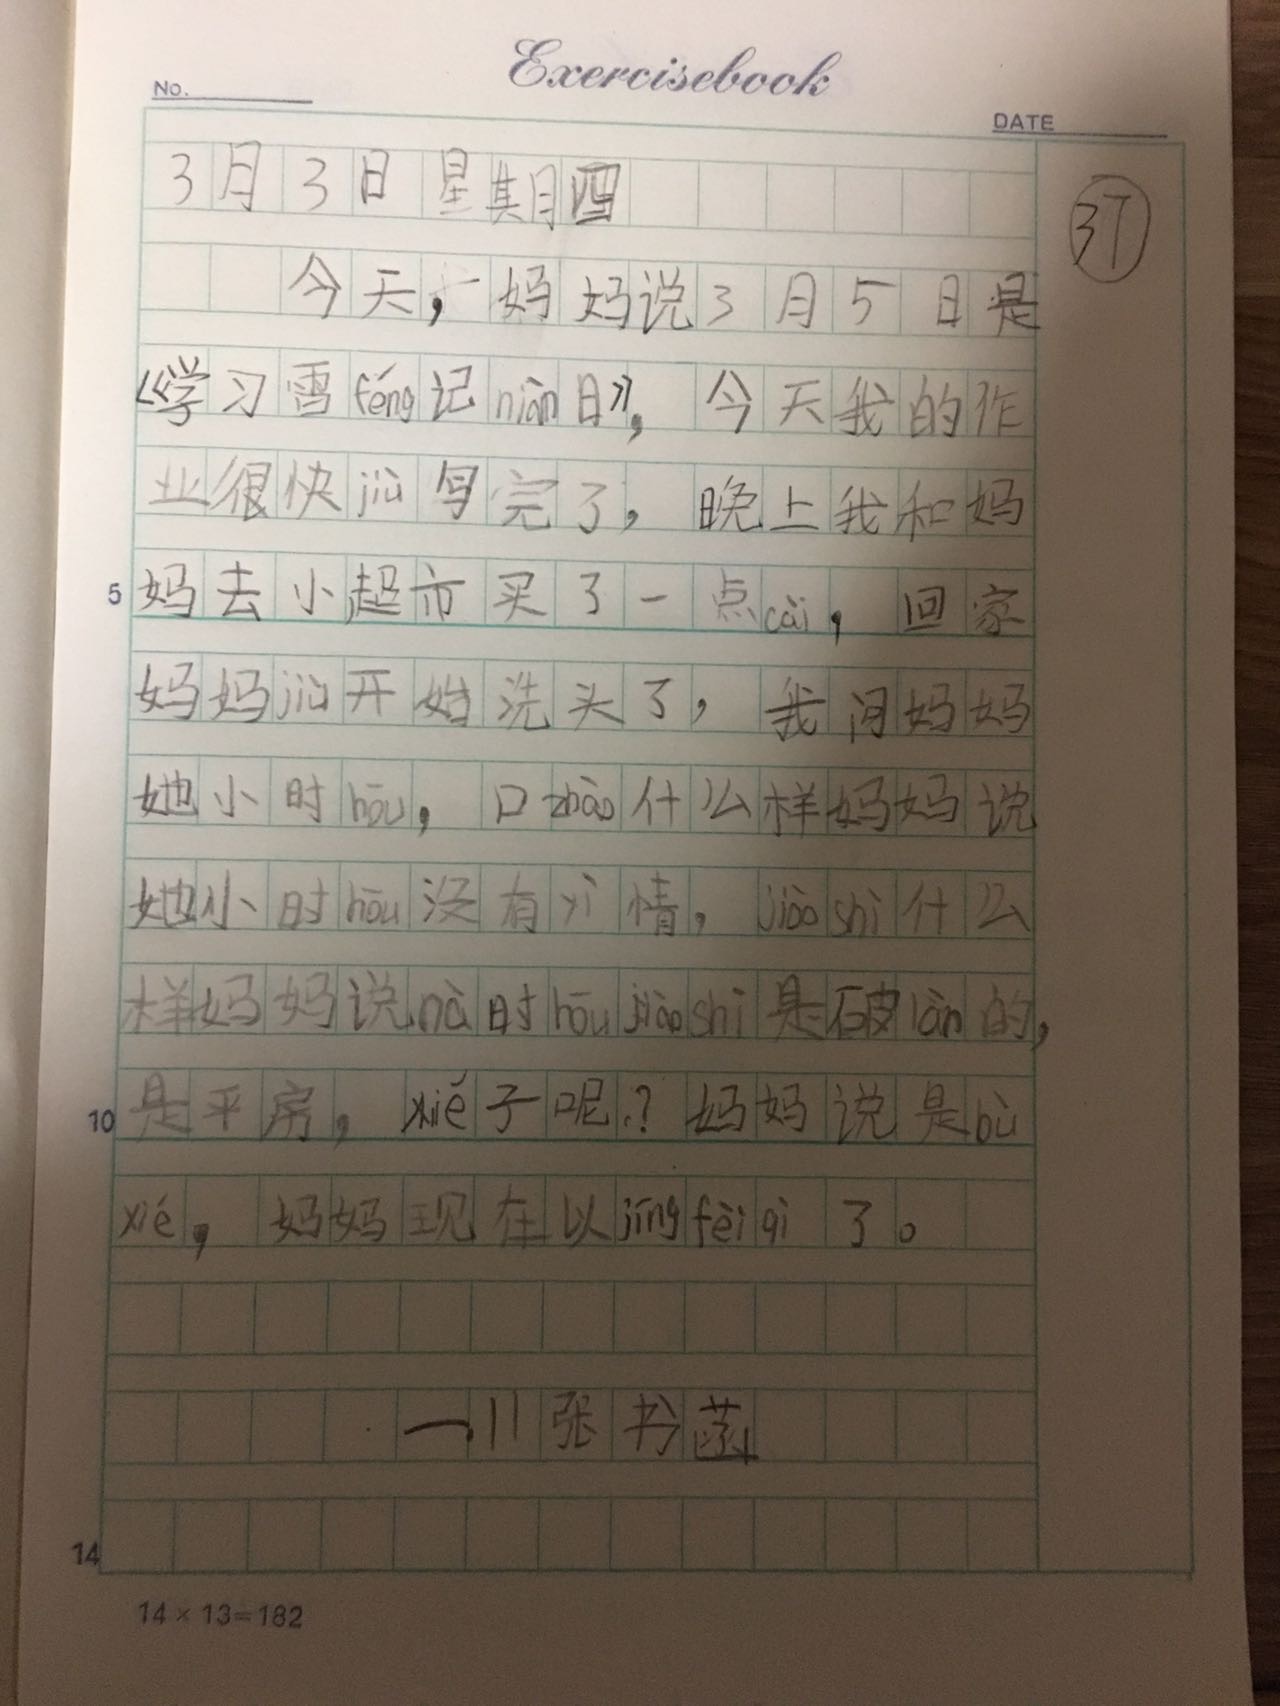 Exercisebook
No.
DATE
3月3日 星期四
37
今天，妈妈说3月5日是
《学习雷féng记niàn日》，今天我的作
业很快jiù写完了，晚上我和妈
妈去小超市买了一点cài，回家
妈妈jiù开始洗头了，我问妈妈
她小时hōu，口zhào什么样妈妈说
她小时hōu没有yì情，jiào shì什么
样妈妈说nà时hōu jiào shì是破làn的，
是平房，xié子呢？妈妈说是bù
xié，妈妈现在以jīng fèi qì了。
一11张书菡
5
10
14
14×13=182